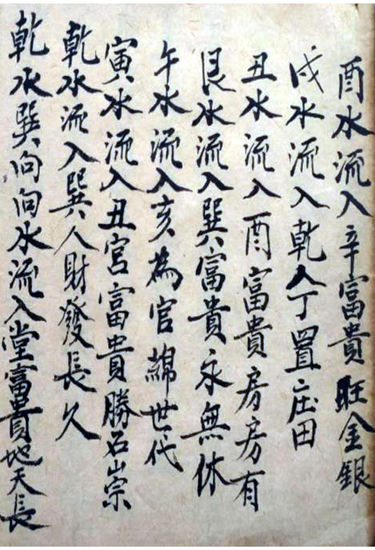 酉水流入辛富貴旺金銀
戌水流入乾人丁置庄田
丑水流入酉富貴房房有
艮水流入巽富貴永無休
午水流入亥為官綿世代
寅水流入丑宮富貴勝石崇
乾水流入巽人財發長久
乾水巽向向水流入堂富貴地天長